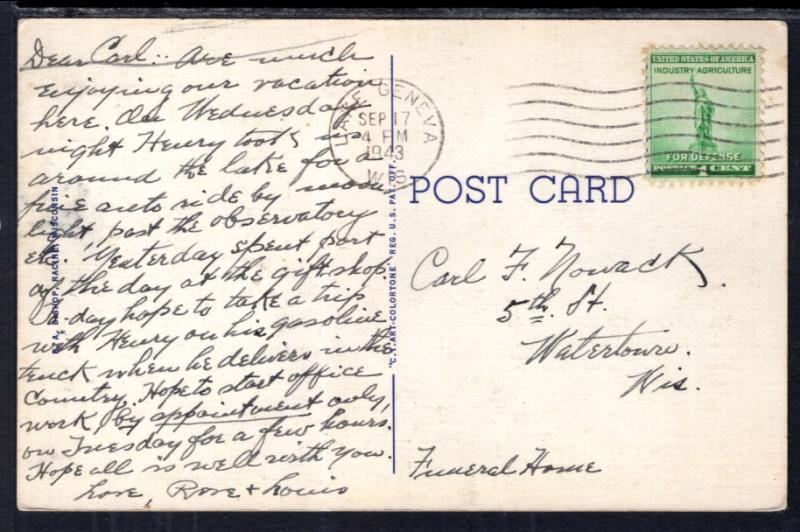 Dear Carl:: Are much
enjoying our vacation
here. On Wednesday
night Henry took us
around the lake for a
fine auto ride by moon
light, past the observatory
etc. Yesterday spent part
of the day at the gift shop
-day hope to take a trip
with Henry on his gasoline
truck when he delivers in the
Country. Hope to start office
work, by appointment only,
on Tuesday for a few hours.
Hope all is well with you.
Love, Rose + Louis
E. A. BISHOP, RACINE, WISCONSIN
"C.T. ART-COLORTONE" REG. U.S. PAT. OFF.
LAKE GENEVA
SEP 17
4 PM
1943
WIS
UNITED STATES OF AMERICA
INDUSTRY-AGRICULTURE
FOR DEFENSE
POSTAGE 1 CENT
POST CARD
Carl F. Nowack.
5th. St.
Watertown.
Wis.
Funeral Home